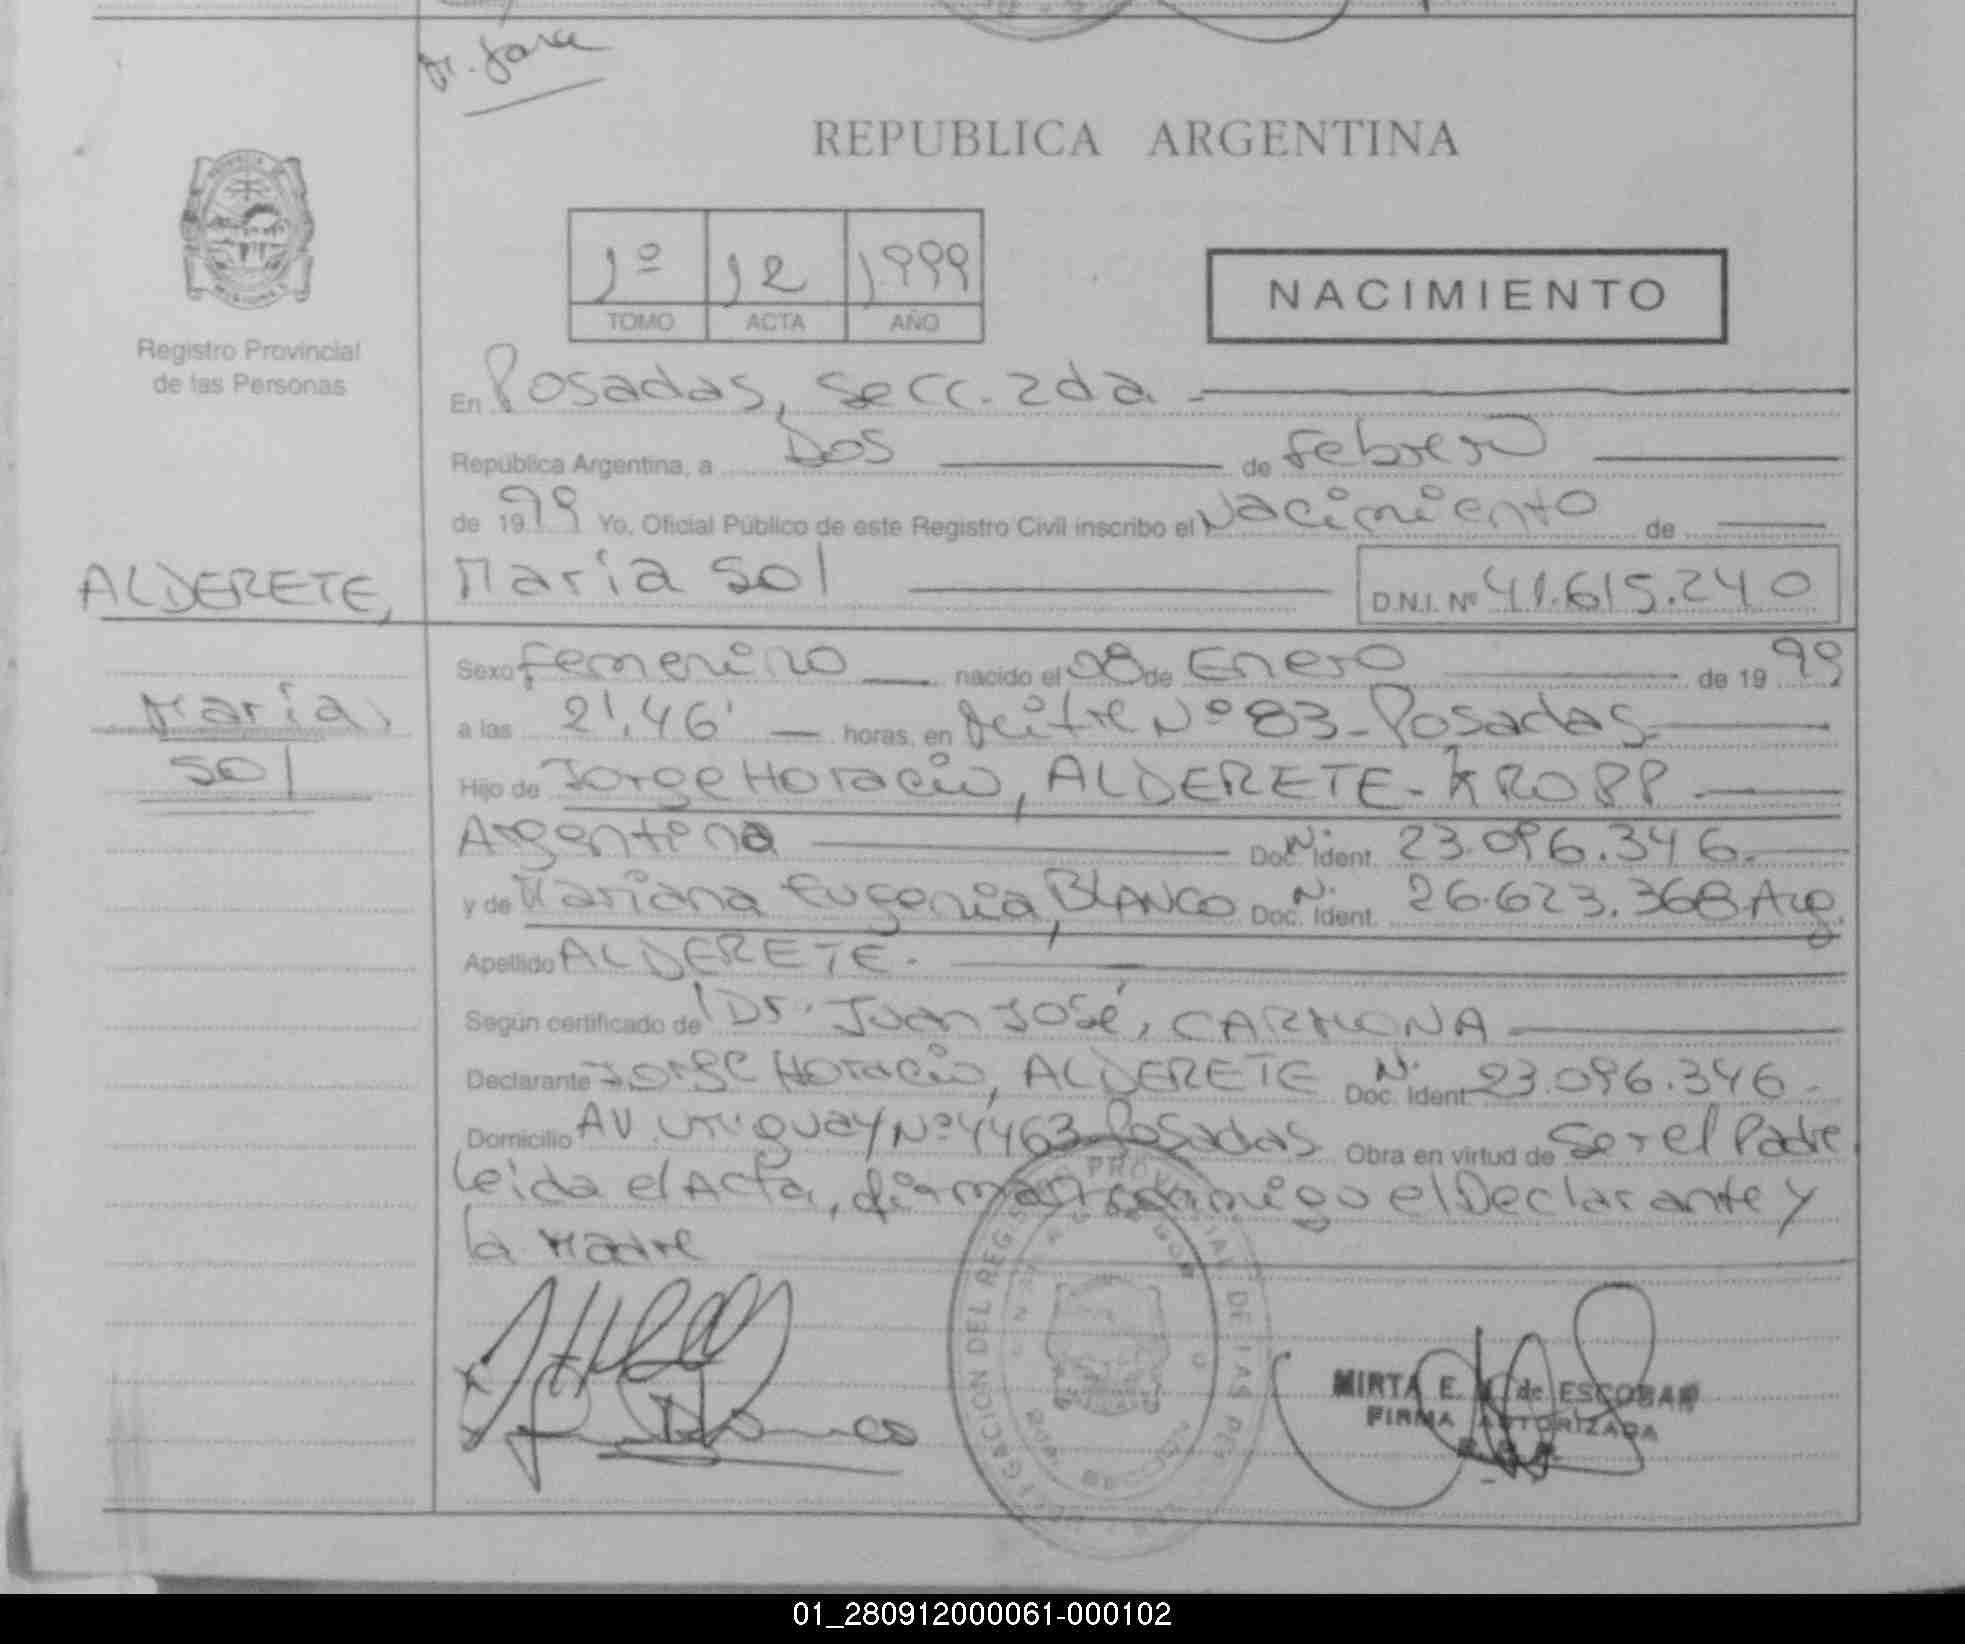 REPUBLICA ARGENTINA
1º 12 1999
TOMO ACTA AÑO
NACIMIENTO
Registro Provincial
de las Personas
En Posadas, Secc. 2da -
República Argentina, a Dos de Febrero
de 1999 Yo, Oficial Público de este Registro Civil inscribo el Nacimiento de
ALDERETE,
María Sol
D.N.I. Nº 41.615.240
Sexo femenino nacido el 08 de Enero de 1999
María
Sol
a las 21,46' horas, en Mitre Nº 83 - Posadas
Hijo de Jorge Horacio, ALDERETE - KROPP
Argentina Doc. Ident. N. 23.096.346.
y de Mariana Eugenia, BLANCO Doc. Ident. N. 26.623.368 Arg.
Apellido ALDERETE.
Según certificado de Dr. Juan José, CARMONA
Declarante Jorge Horacio, ALDERETE Doc. Ident. N. 23.096.346 -
Domicilio AV. Uruguay Nº 4463 - Posadas Obra en virtud de Ser el Padre
Leida el Acta, firman conmigo el Declarante y
la Madre
DELEGACION DEL REGISTRO PROVINCIAL DE LAS PER
MIRTA E. de ESCOBAR
FIRMA AUTORIZADA
01_280912000061-000102